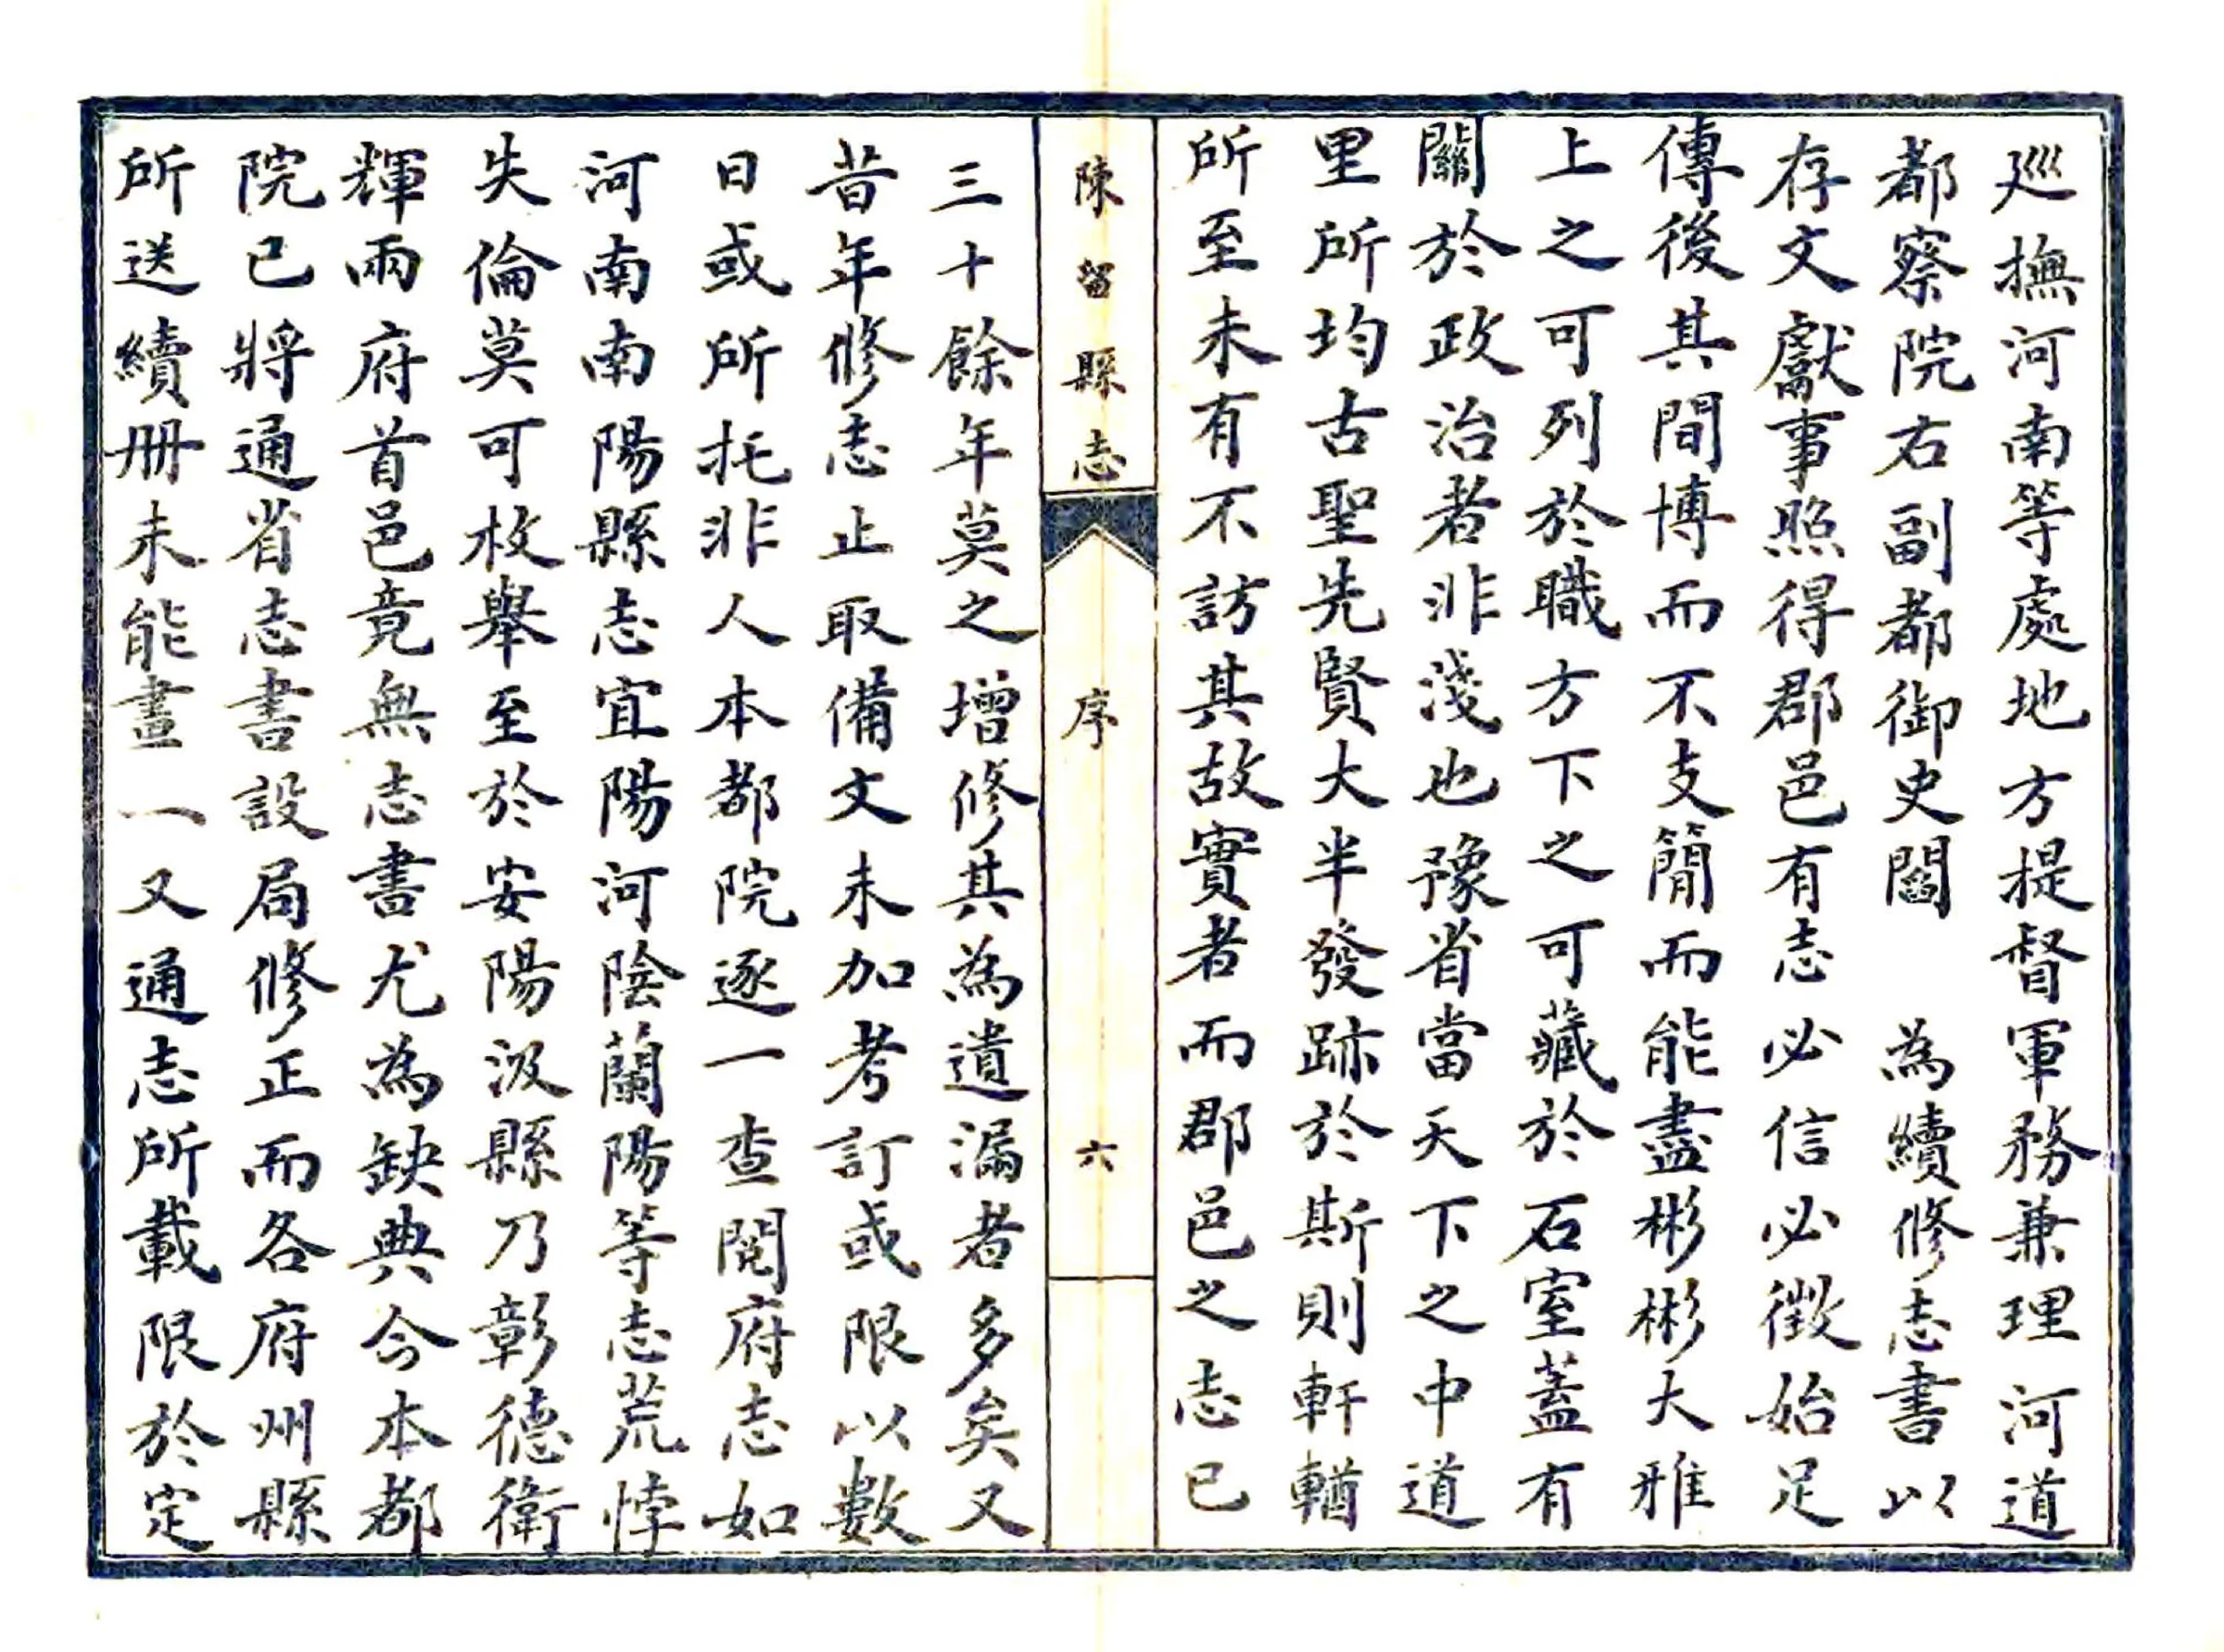 廵撫河南等處地方提督軍務兼理河道
都察院右副都御史閻　為續修志書以
存文獻事照得郡邑有志必信必徵始足
傳後其間博而不支簡而能盡彬彬大雅
上之可列於職方下之可藏於石室蓋有
關於政治者非淺也豫省當天下之中道
里所均古聖先賢大半發跡於斯則軒輶
所至未有不訪其故實者而郡邑之志已
陳留縣志
序
六
三十餘年莫之增修其為遺漏者多矣又
昔年修志止取備文未加考訂或限以數
日或所托非人本都院逐一查閱府志如
河南南陽縣志宜陽河陰蘭陽等志荒悖
失倫莫可枚舉至於安陽汲縣乃彰德衛
輝兩府首邑竟無志書尤為缺典今本都
院已將通省志書設局修正而各府州縣
所送續册未能畫一又通志所載限於定